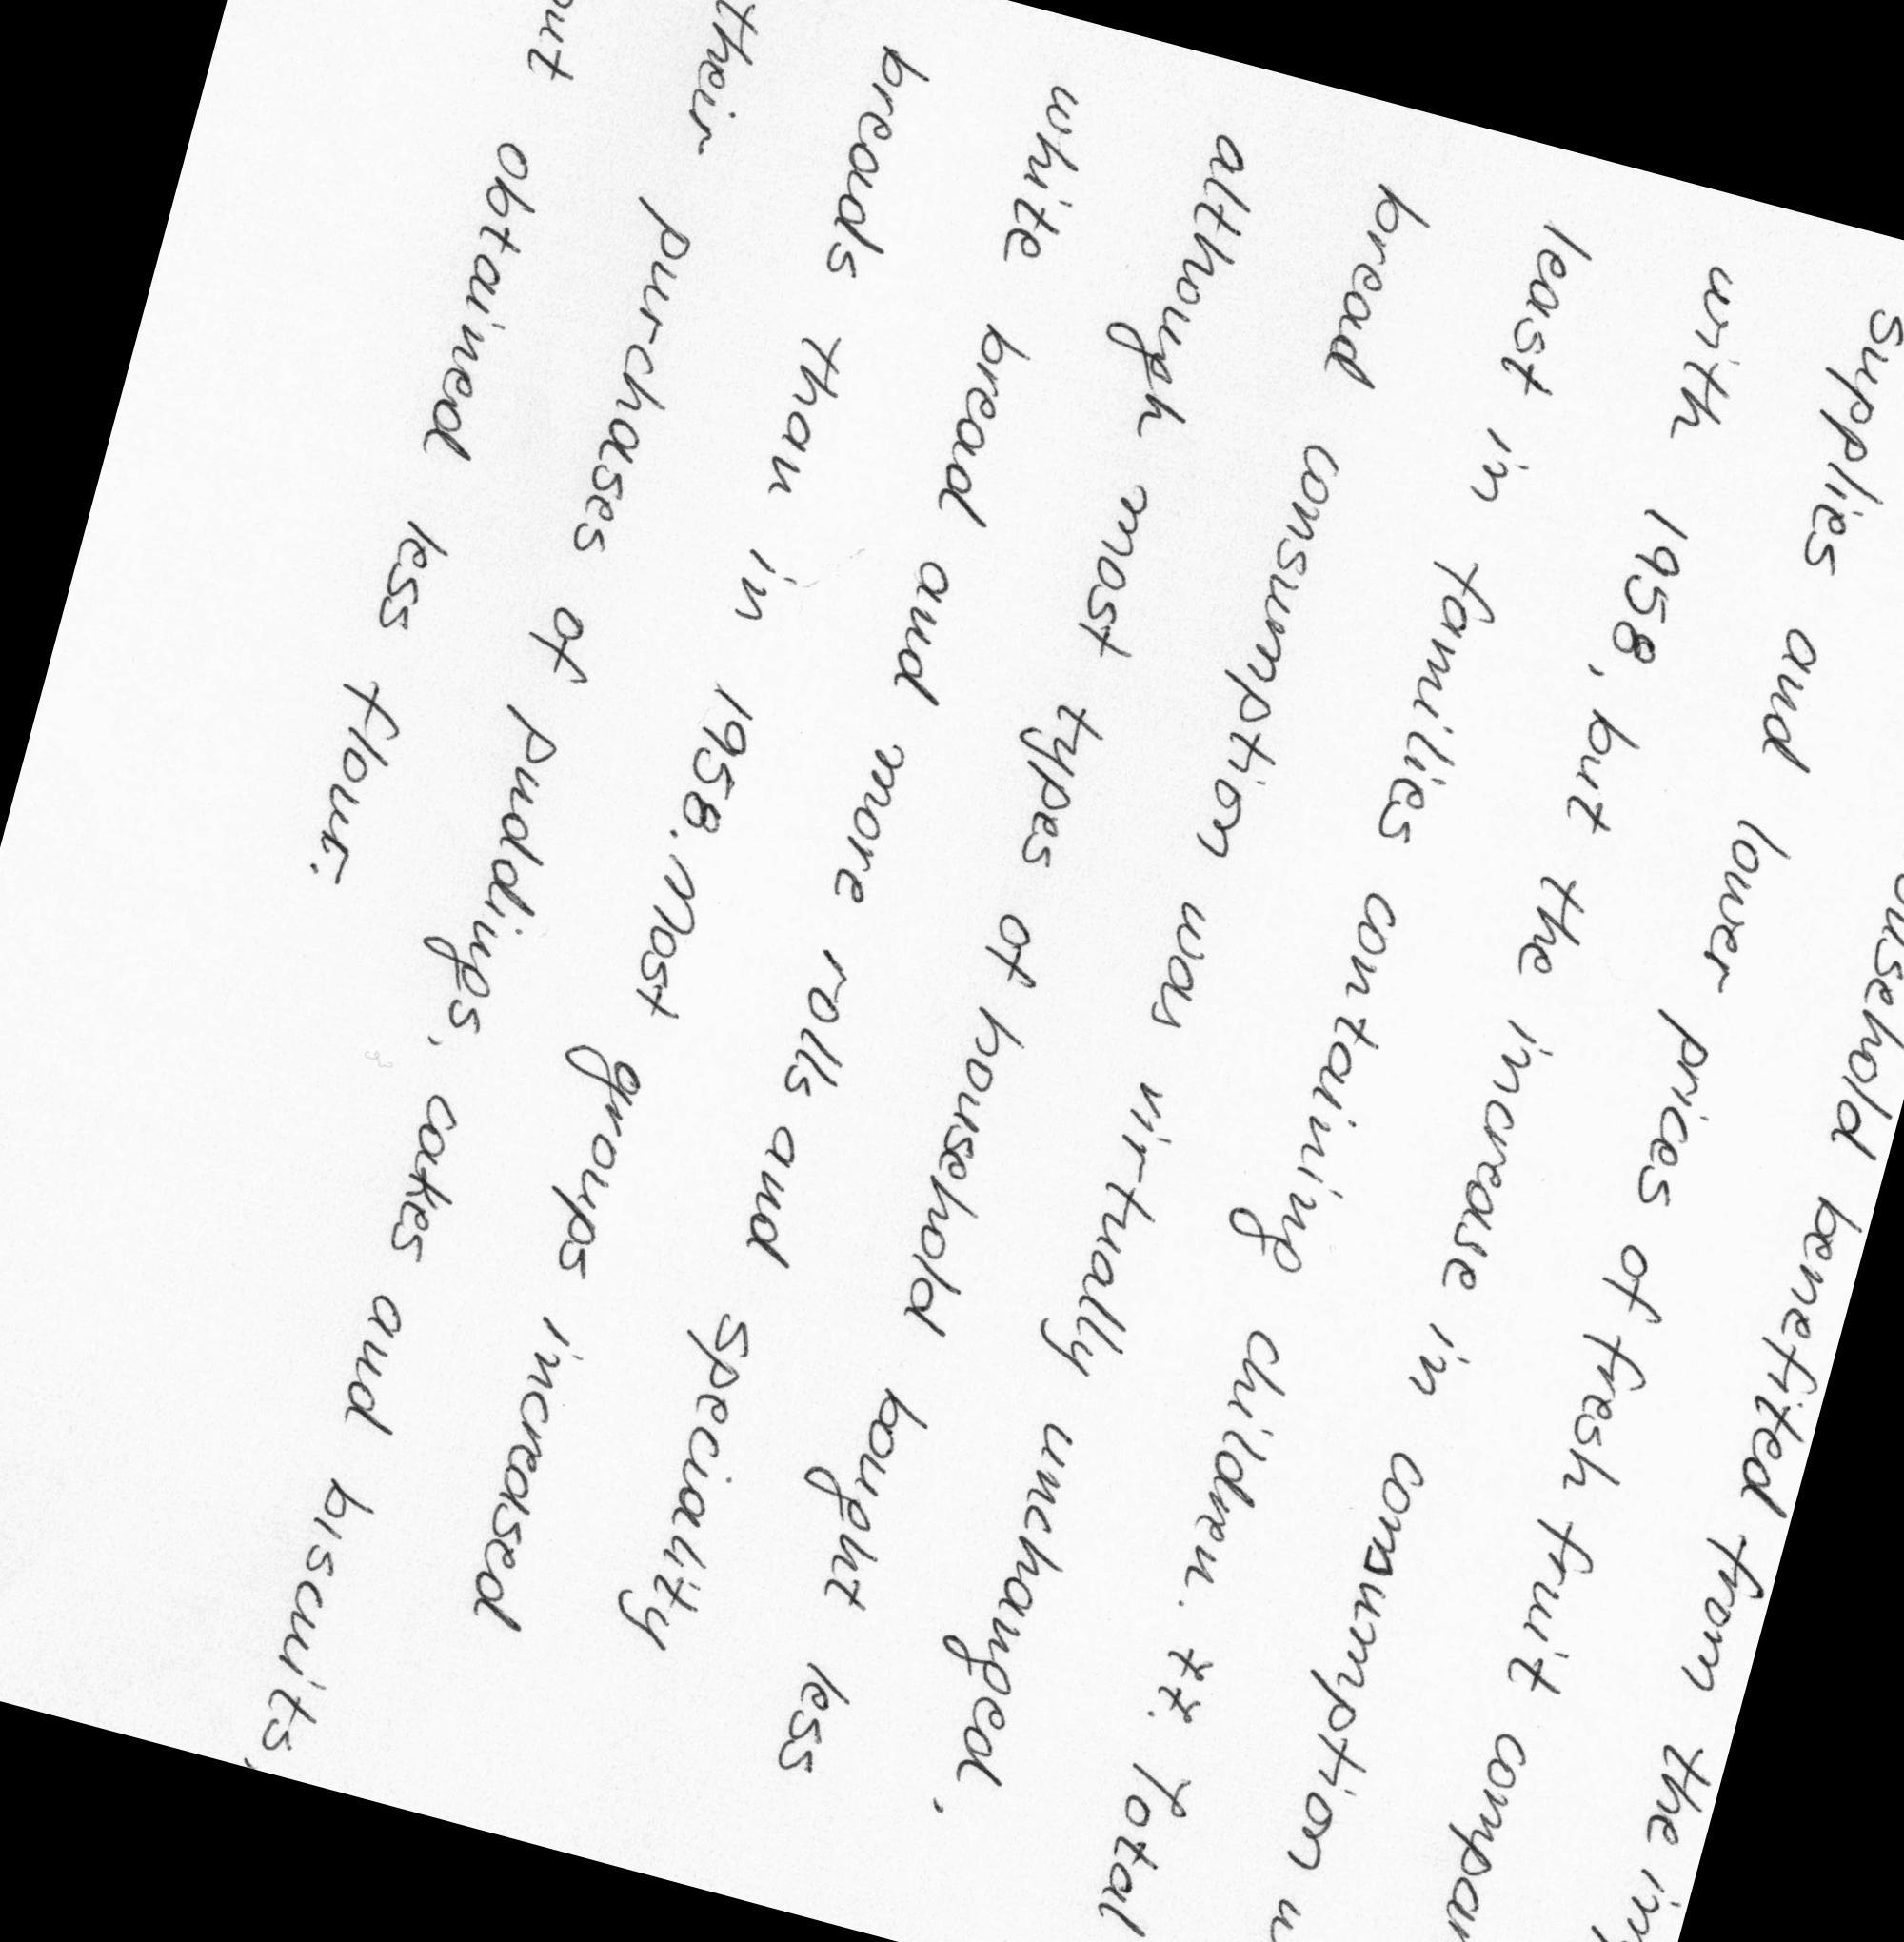 household benefited from the
supplies and lower prices of fresh fruit
with 1958, but the increase in consumption
least in families containing children. 77. Total
bread consumption was virtually unchanged,
although most types of household bought less
white bread and more rolls and speciality
breads than in 1958. Most groups increased
their purchases of puddings, cakes and biscuits,
but obtained less flour.